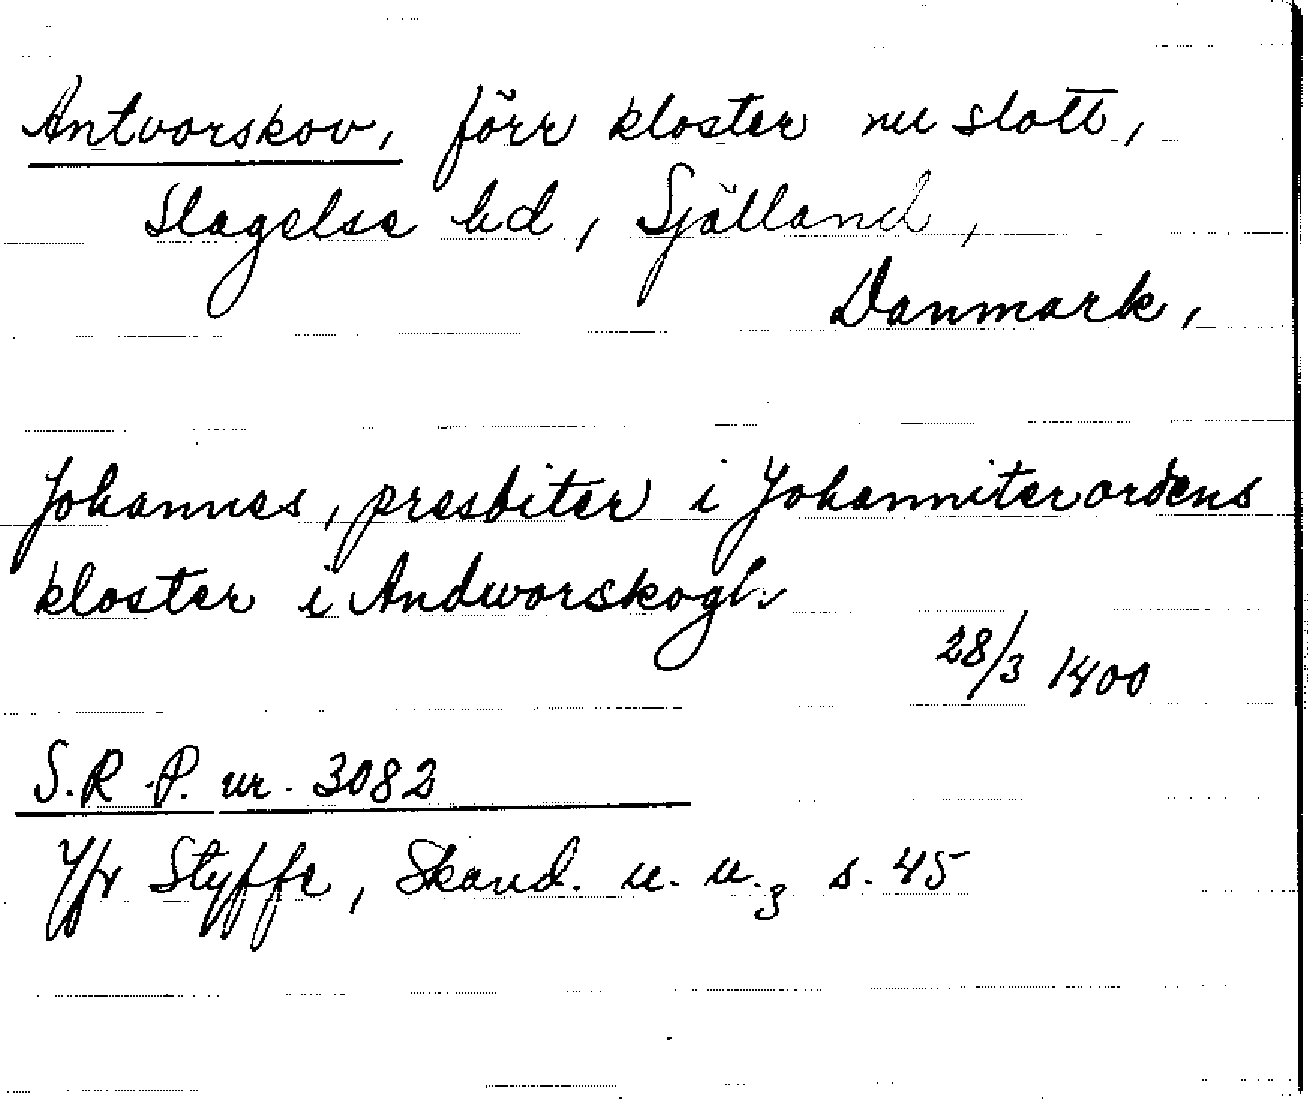 Antvorskov, förr kloster nu slott,
Slagelse hd, Själland,
Danmark,
Johannes, presbiter i Johanniterordens
kloster i Andworskogh.
28/3 1400
S.R.P. nr. 3082
Jfr Styffe, Skand. u. u.3 s. 45